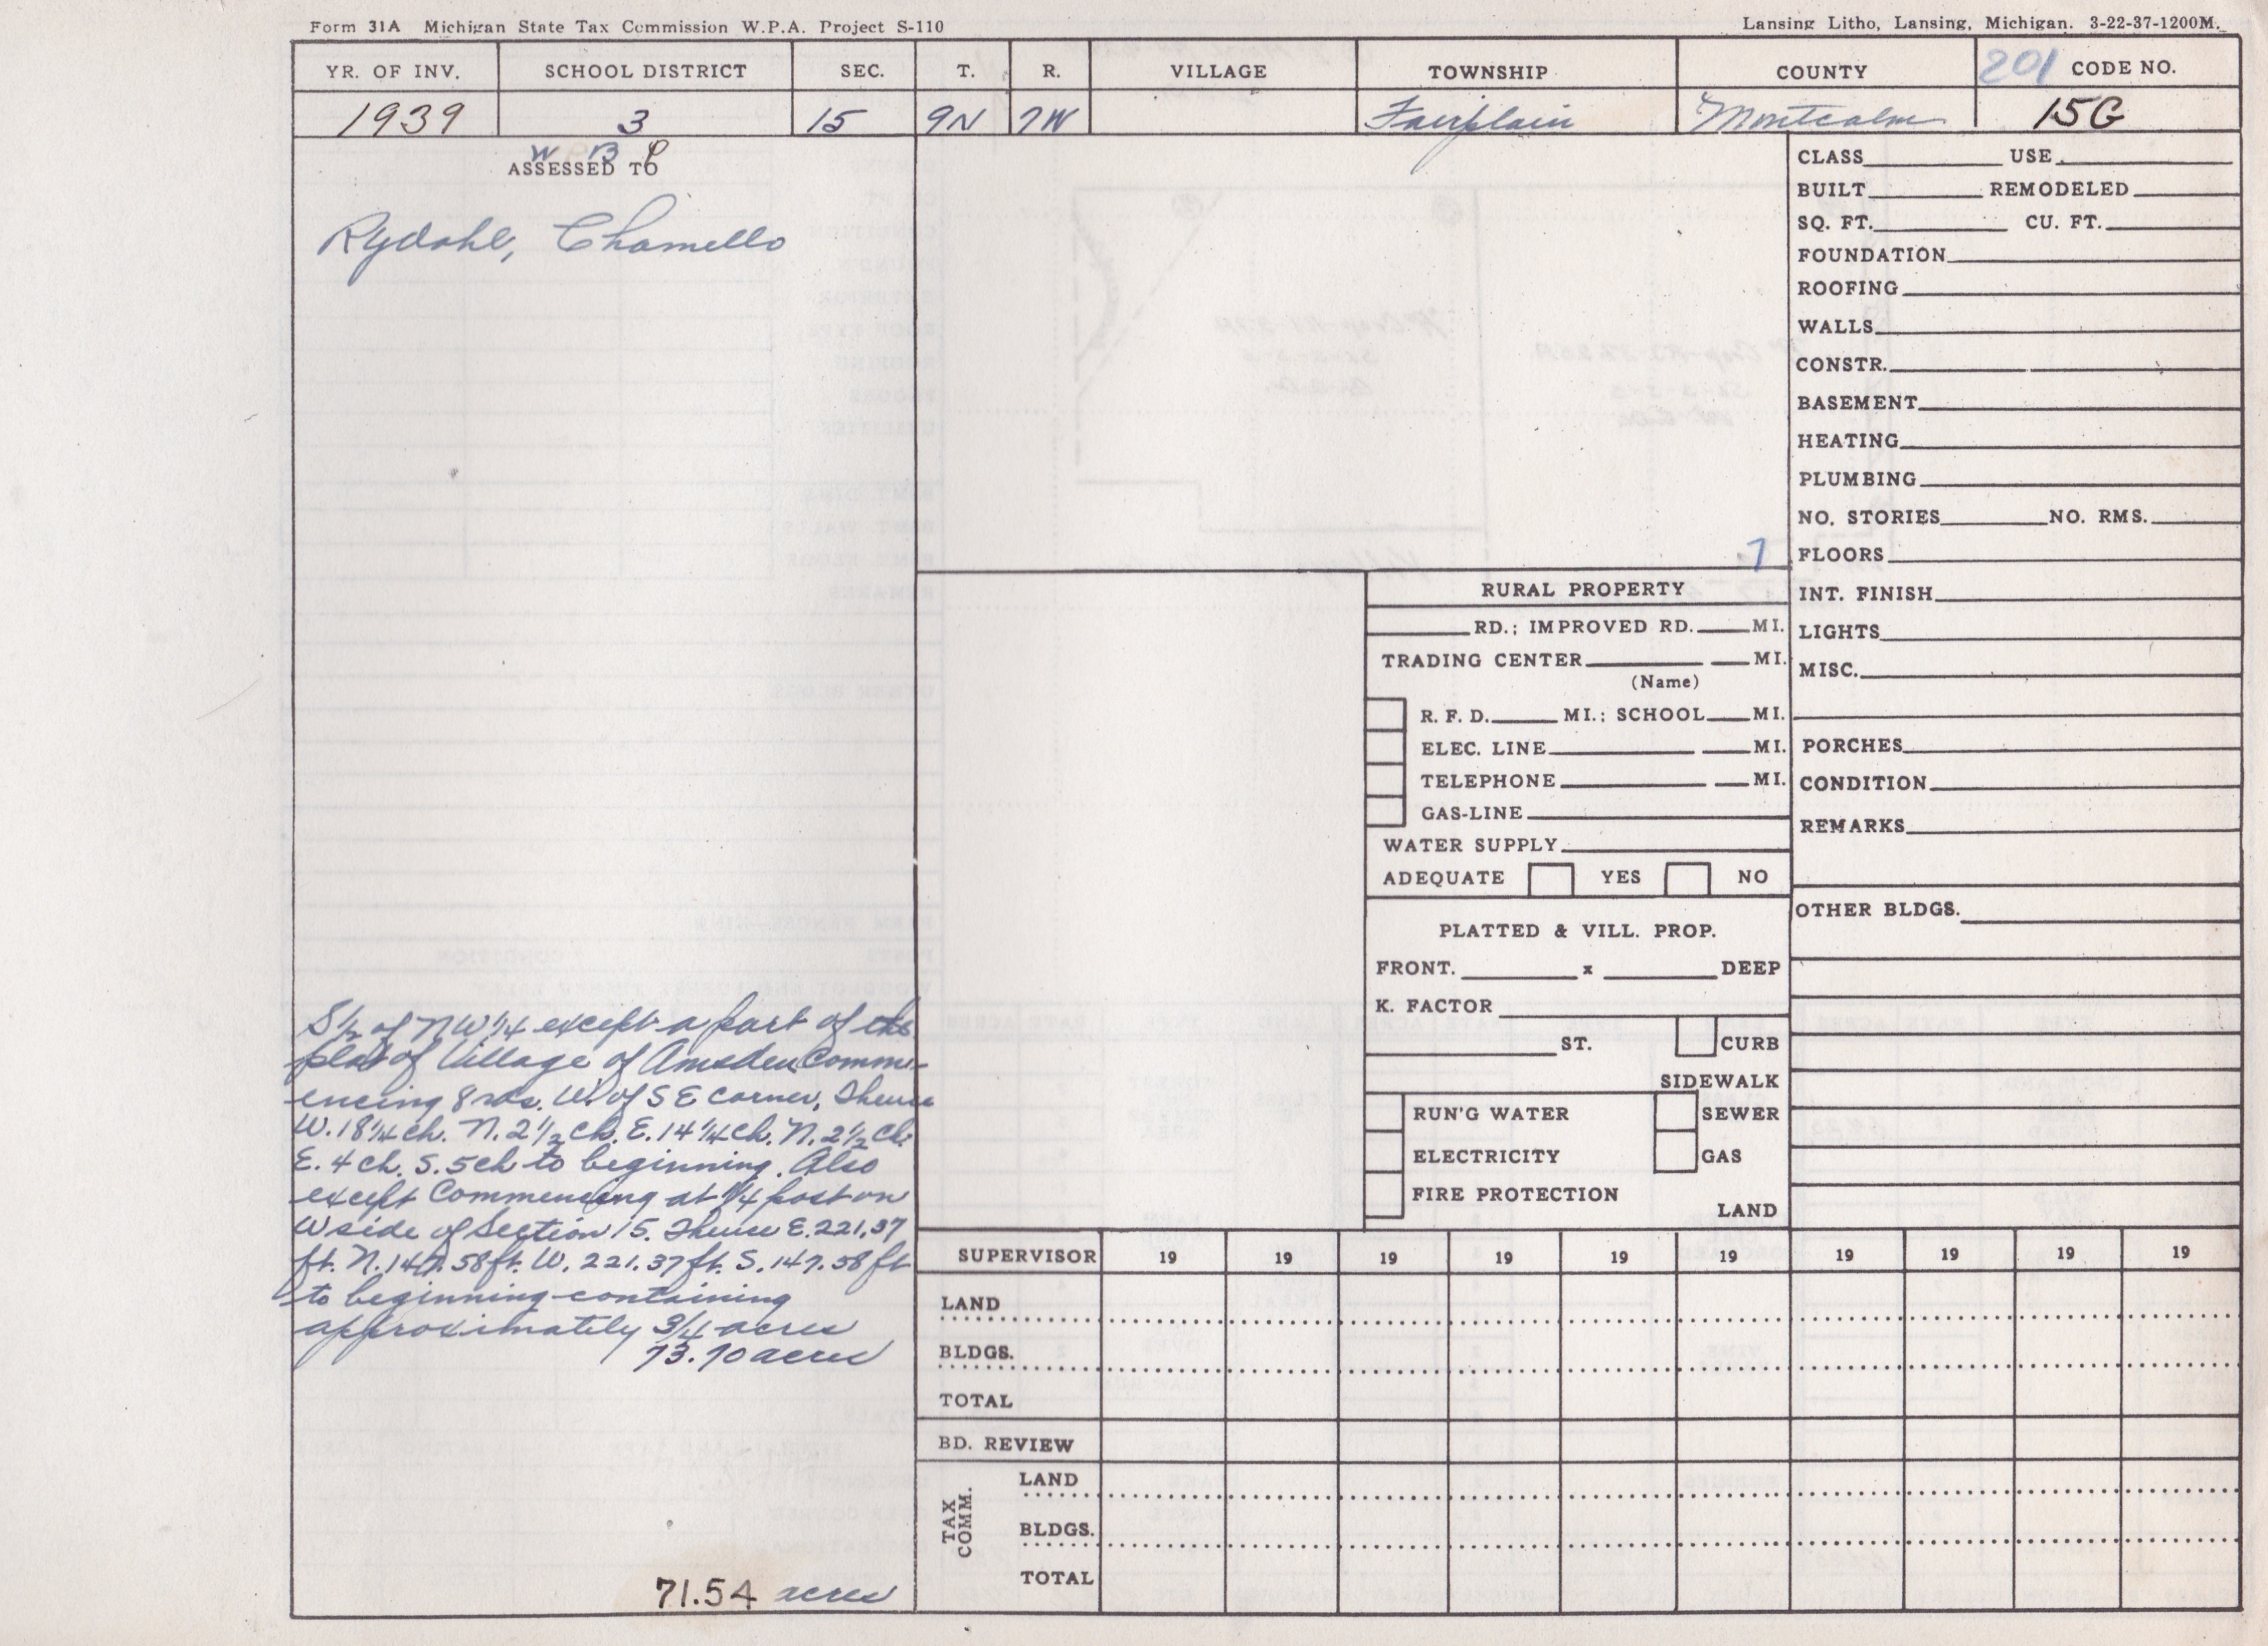 Form 31A Michigan State Tax Commission W.P.A. Project S-110
Lansing Litho, Lansing, Michigan. 3-22-37-1200M.
YR. OF INV. SCHOOL DISTRICT SEC. T. R. VILLAGE TOWNSHIP COUNTY 201 CODE NO.
1939 3 15 9N 7W Fairplain Montcalm 15G
W B P
ASSESSED TO
Rydahl, Chamello
S 1/2 of NW 1/4 except a part of the
plat of Village of Amsden Comm-
encing 8 rds. W. of S E corner, Thence
W. 18 1/4 ch. N. 2 1/2 ch. E. 14 1/4 ch. N. 2 1/2 ch.
E. 4 ch. S. 5 ch to beginning. Also
except Commencing at 1/4 post on
W side of Section 15. Thence E. 221.37
ft. N. 147.58 ft. W. 221.37 ft. S. 147.58 ft
to beginning containing
approximately 3/4 acres
73.70 acres
71.54 acres
7
RURAL PROPERTY
RD.; IMPROVED RD. MI.
TRADING CENTER MI.
(Name)
R. F. D. MI.; SCHOOL MI.
ELEC. LINE MI.
TELEPHONE MI.
GAS-LINE
WATER SUPPLY
ADEQUATE YES NO
PLATTED & VILL. PROP.
FRONT. x DEEP
K. FACTOR
ST. CURB
SIDEWALK
RUN'G WATER SEWER
ELECTRICITY GAS
FIRE PROTECTION
LAND
CLASS USE
BUILT REMODELED
SQ. FT. CU. FT.
FOUNDATION
ROOFING
WALLS
CONSTR.
BASEMENT
HEATING
PLUMBING
NO. STORIES NO. RMS.
FLOORS
INT. FINISH
LIGHTS
MISC.
PORCHES
CONDITION
REMARKS
OTHER BLDGS.
SUPERVISOR 19 19 19 19 19 19 19 19 19 19
LAND
BLDGS.
TOTAL
BD. REVIEW
TAX COMM.
LAND
BLDGS.
TOTAL